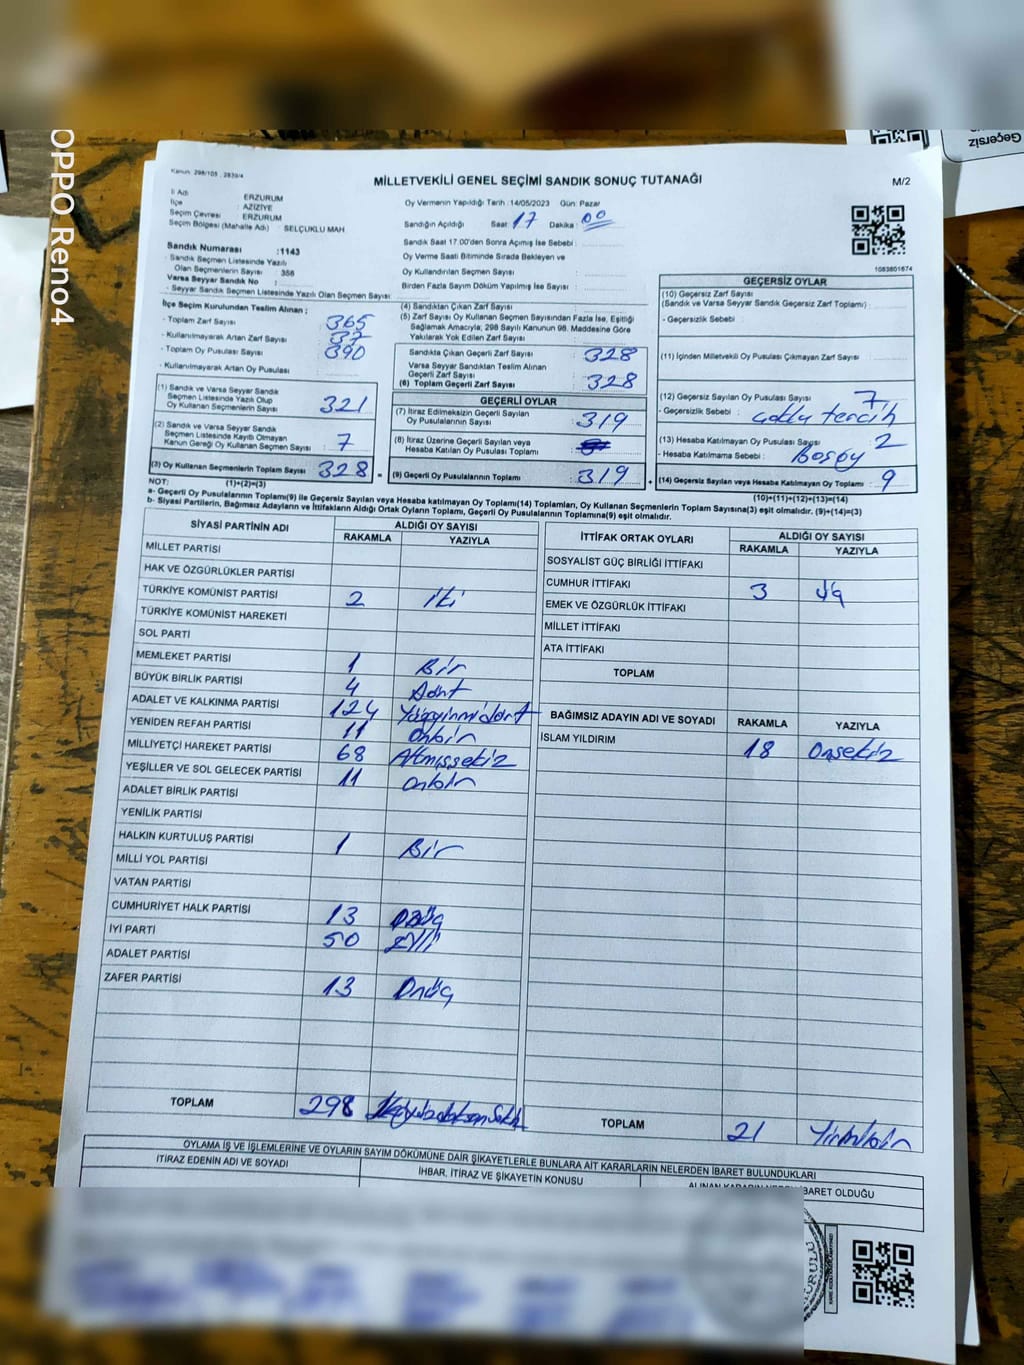 OPPO Reno4
Geçersiz
Kanun: 298/105 , 2839/4
MİLLETVEKİLİ GENEL SEÇİMİ SANDIK SONUÇ TUTANAĞI
M/2
İl Adı ERZURUM
İlçe AZİZİYE
Seçim Çevresi ERZURUM
Seçim Bölgesi (Mahalle Adı) SELÇUKLU MAH
Sandık Numarası :1143
Sandık Seçmen Listesinde Yazılı
Olan Seçmenlerin Sayısı : 356
Varsa Seyyar Sandık No :
Seyyar Sandık Seçmen Listesinde Yazılı Olan Seçmen Sayısı
Oy Vermenin Yapıldığı Tarih :14/05/2023 Gün: Pazar
Sandığın Açıldığı Saat 17 Dakika : 00
Sandık Saat 17.00'den Sonra Açımış İse Sebebi :
Oy Verme Saati Bitiminde Sırada Bekleyen ve
Oy Kullandırılan Seçmen Sayısı :
Birden Fazla Sayım Dökümü Yapılmış İse Sayısı :
1083801674
İlçe Seçim Kurulundan Teslim Alınan ;
- Toplam Zarf Sayısı : 365
- Kullanılmayarak Artan Zarf Sayısı : 37
- Toplam Oy Pusulası Sayısı : 390
- Kullanılmayarak Artan Oy Pusulası :
(1) Sandık ve Varsa Seyyar Sandık
Seçmen Listesinde Yazılı Olup
Oy Kullanan Seçmenlerin Sayısı : 321
(2) Sandık ve Varsa Seyyar Sandık
Seçmen Listesinde Kayıtlı Olmayan
Kanun Gereği Oy Kullanan Seçmen Sayısı : 7
(3) Oy Kullanan Seçmenlerin Toplam Sayısı : 328 =
(4) Sandıktan Çıkan Zarf Sayısı :
(5) Zarf Sayısı Oy Kullanan Seçmen Sayısından Fazla İse, Eşitliği
Sağlamak Amacıyla, 298 Sayılı Kanunun 98. Maddesine Göre
Yakılarak Yok Edilen Zarf Sayısı :
Sandıkta Çıkan Geçerli Zarf Sayısı : 328
Varsa Seyyar Sandıktan Teslim Alınan
Geçerli Zarf Sayısı :
(6) Toplam Geçerli Zarf Sayısı : 328
GEÇERLİ OYLAR
(7) İtiraz Edilmeksizin Geçerli Sayılan
Oy Pusulalarının Sayısı : 319
(8) İtiraz Üzerine Geçerli Sayılan veya
Hesaba Katılan Oy Pusulası Toplamı :
(9) Geçerli Oy Pusulalarının Toplamı : 319 +
GEÇERSİZ OYLAR
(10) Geçersiz Zarf Sayısı
(Sandık ve Varsa Seyyar Sandık Geçersiz Zarf Toplamı) :
- Geçersizlik Sebebi :
(11) İçinden Milletvekili Oy Pusulası Çıkmayan Zarf Sayısı :
(12) Geçersiz Sayılan Oy Pusulası Sayısı : 7
- Geçersizlik Sebebi : Çoklu tercih
(13) Hesaba Katılmayan Oy Pusulası Sayısı : 2
- Hesaba Katılmama Sebebi : Boş oy
(14) Geçersiz Sayılan veya Hesaba Katılmayan Oy Toplamı : 9
NOT: (1)+(2)=(3)
(10)+(11)+(12)+(13)=(14)
a- Geçerli Oy Pusulalarının Toplamı(9) ile Geçersiz Sayılan veya Hesaba katılmayan Oy Toplamı(14) Toplamları, Oy Kullanan Seçmenlerin Toplam Sayısına(3) eşit olmalıdır. (9)+(14)=(3)
b- Siyasi Partilerin, Bağımsız Adayların ve İttifakların Aldığı Ortak Oyların Toplamı, Geçerli Oy Pusulalarının Toplamına(9) eşit olmalıdır.
SİYASİ PARTİNİN ADI ALDIĞI OY SAYISI
RAKAMLA YAZIYLA
MİLLET PARTİSİ
HAK VE ÖZGÜRLÜKLER PARTİSİ
TÜRKİYE KOMÜNİST PARTİSİ 2 iki
TÜRKİYE KOMÜNİST HAREKETİ
SOL PARTİ
MEMLEKET PARTİSİ 1 Bir
BÜYÜK BİRLİK PARTİSİ 4 Dört
ADALET VE KALKINMA PARTİSİ 124 Yüzyirmidört
YENİDEN REFAH PARTİSİ 11 Onbir
MİLLİYETÇİ HAREKET PARTİSİ 68 Altmışsekiz
YEŞİLLER VE SOL GELECEK PARTİSİ 11 onbir
ADALET BİRLİK PARTİSİ
YENİLİK PARTİSİ
HALKIN KURTULUŞ PARTİSİ 1 Bir
MİLLİ YOL PARTİSİ
VATAN PARTİSİ
CUMHURİYET HALK PARTİSİ 13 Onüç
İYİ PARTİ 50 Elli
ADALET PARTİSİ
ZAFER PARTİSİ 13 Onüç
TOPLAM 298
İTTİFAK ORTAK OYLARI ALDIĞI OY SAYISI
RAKAMLA YAZIYLA
SOSYALİST GÜÇ BİRLİĞİ İTTİFAKI
CUMHUR İTTİFAKI 3 üç
EMEK VE ÖZGÜRLÜK İTTİFAKI
MİLLET İTTİFAKI
ATA İTTİFAKI
TOPLAM
BAĞIMSIZ ADAYIN ADI VE SOYADI RAKAMLA YAZIYLA
İSLAM YILDIRIM 18 Onsekiz
TOPLAM 21 Yirmibir
OYLAMA İŞ VE İŞLEMLERİNE VE OYLARIN SAYIM DÖKÜMÜNE DAİR ŞİKAYETLERLE BUNLARA AİT KARARLARIN NELERDEN İBARET BULUNDUKLARI
İTİRAZ EDENİN ADI VE SOYADI İHBAR, İTİRAZ VE ŞİKAYETİN KONUSU ALINAN KARARIN NEDEN İBARET OLDUĞU